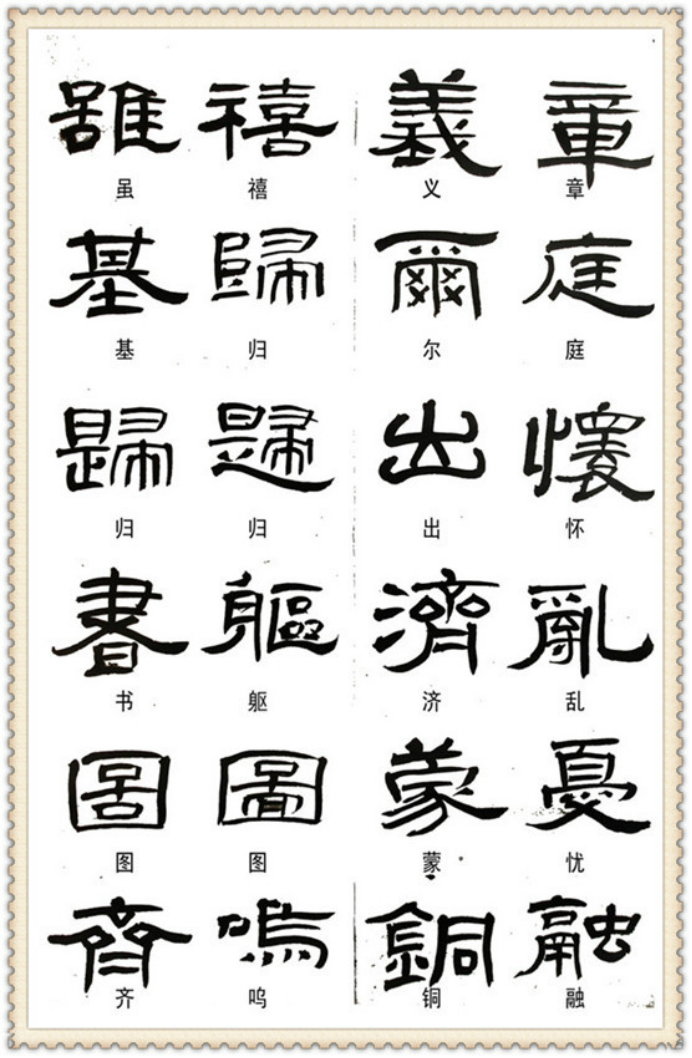 雖 禧 義 章
虽 禧 义 章
基 歸 爾 庭
基 归 尔 庭
歸 歸 出 懷
归 归 出 怀
書 軀 濟 亂
书 躯 济 乱
圖 圖 蒙 憂
图 图 蒙 忧
齊 嗚 銅 融
齐 呜 铜 融